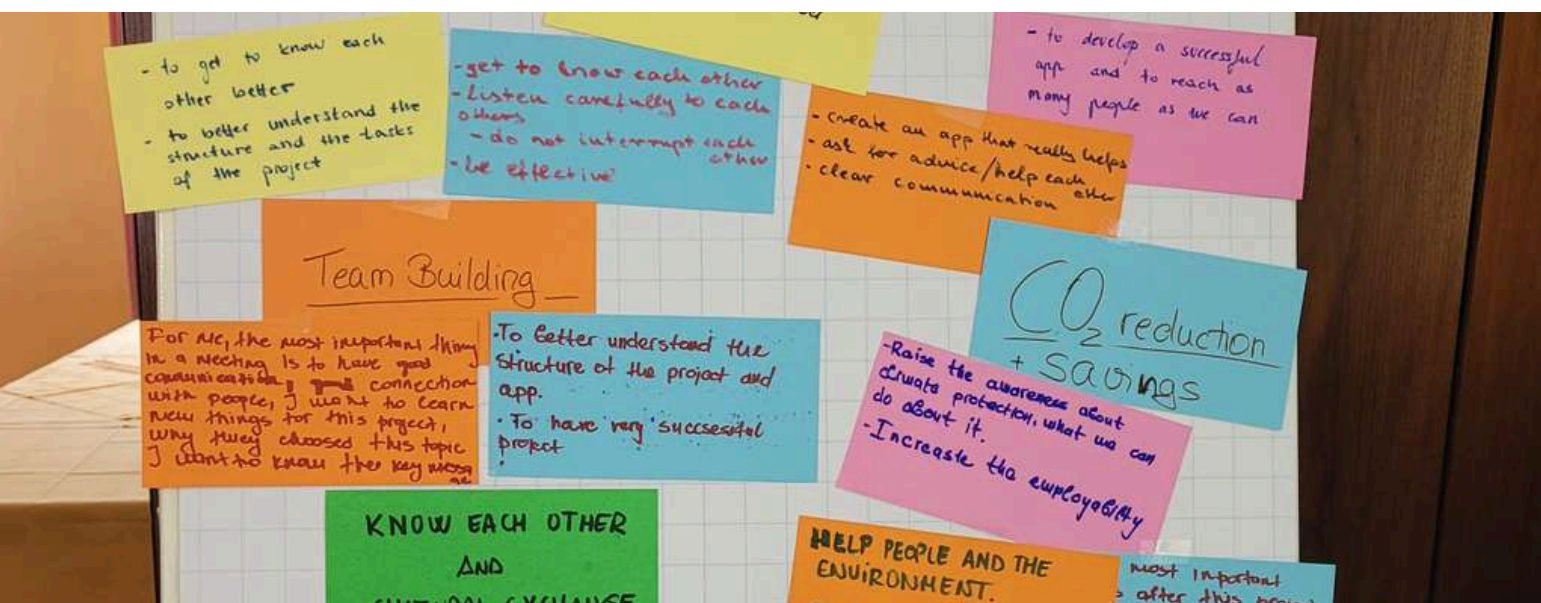 - to get to know each
other better
- to better understand the
structure and the tasks
of the project
-get to know each other
-Listen carefully to each
others
- do not interrupt each
other
-be effective
- create an app that really helps
- ask for advice/help each
other
- clear communication
- to develop a successful
app and to reach as
many people as we can
Team Building
CO2 reduction
+ savings
For me, the most important thing
in a meeting is to have good
communication, connection
with people, I want to learn
new things for this project,
why they choosed this topic
I want to know the key messa
ge
·To better understand the
structure of the project and
app.
· To have very succsessful
project
-Raise the awareness about
climate protection, what we can
do about it.
-Increaste the employability
KNOW EACH OTHER
AND
CULTURAL EXCHANGE
HELP PEOPLE AND THE
ENVIRONMENT.
most important
after this